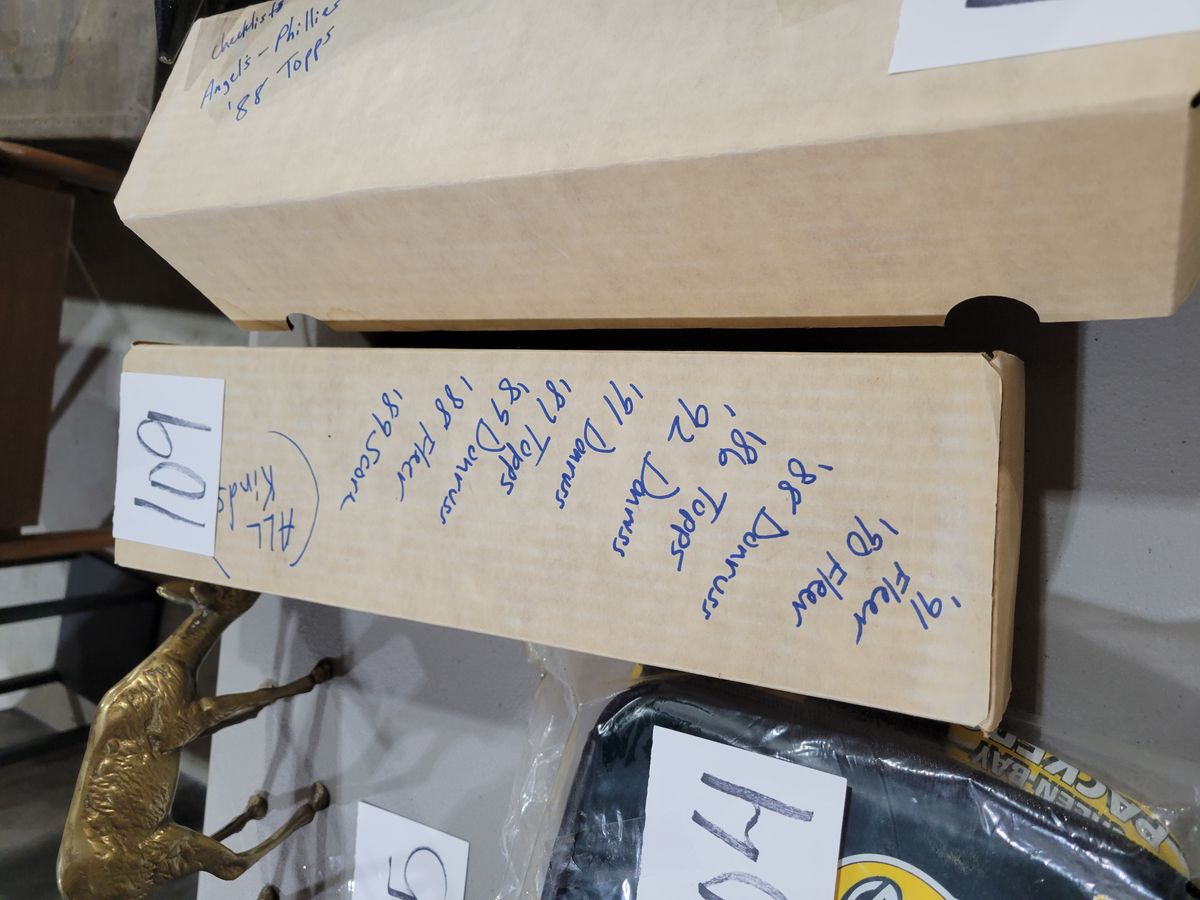 Checklists
Angels - Phillies
'88 Topps
109
ALL
Kinds
'89 Score
'88 Fleer
'89 Donruss
'87 Topps
'91 Donruss
92 Donruss
'86 Topps
'88 Donruss
'90 Fleer
'91 Fleer
GREEN BAY
PACKERS